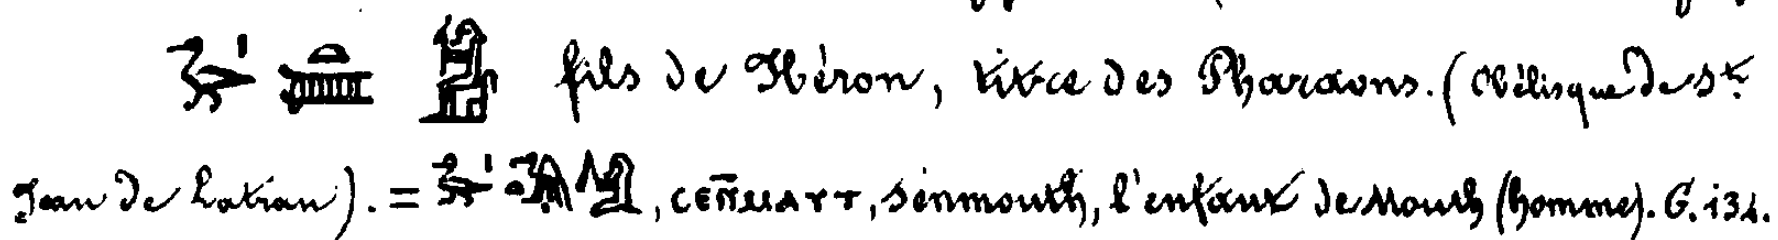 fils de Héron, titre des Pharaons. (Obélisque de St.
Jean de Latran). = , ⲥⲉⲛ̄ⲙⲁⲩⲧ, Senmouth, l'enfant de Mouth (homme). G. 134.